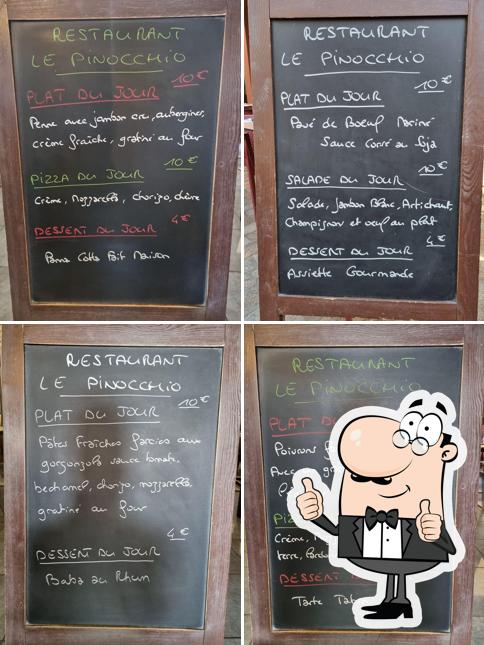 RESTAURANT
LE PINOCCHIO
10€
PLAT DU JOUR
Penne avec jambon cru, aubergines,
crème fraîche, gratiné au four
10€
PIZZA DU JOUR
Crème, Mozzarella, chorizo, chèvre
4€
DESSERT DU JOUR
Panna Cotta Fait Maison
RESTAURANT
LE PINOCCHIO
10€
PLAT DU JOUR
Pavé de Boeuf Mariné
Sauce au Soja
10€
SALADE DU JOUR
Salade, Jambon Blanc, Artichaut,
Champignon et oeuf au plat
4€
DESSERT DU JOUR
Assiette Gourmande
RESTAURANT
LE PINOCCHIO
10€
PLAT DU JOUR
Pâtes Fraîches farcies aux
gorgonzola sauce tomate,
bechamel, chorizo, mozzarella,
gratiné au four
4€
DESSERT DU JOUR
Baba au Rhum
RESTAURANT
LE PINOCCHIO
PLAT D
Poissons
Avec
PIZ
Crème,
terre,
DESSERT
Tarte